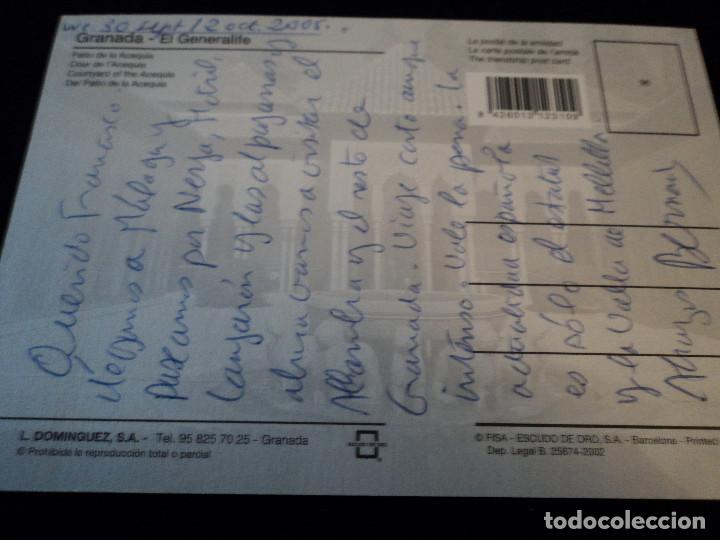 we 30 sept / 2 oct. 2005.
Granada - El Generalife
Patio de la Acequia
Cour de l'Acequia
Courtyard of the Acequia
Der Patio de la Acequia
La postal de la amistad
La carte postale de l'amitié
The friendship post card
8 426012 123109
Querido Francisco:
Llegamos a Málaga y
paseamos por Nerja, Motril,
Lanjarón y las alpujarras y
ahora vamos a visitar el
Alhambra y el resto de
Granada. Viaje corto aunque
intenso. Vale la pena. La
actualidad española
es sólo el estatut
y la Valla de Melilla
Bernar
L. DOMINGUEZ, S.A. - Tel. 95 825 70 25 - Granada
© Prohibida la reproducción total o parcial
© FISA - ESCUDO DE ORO, S.A. - Barcelona - Printed
Dep. Legal B. 25674-2002
todocoleccion